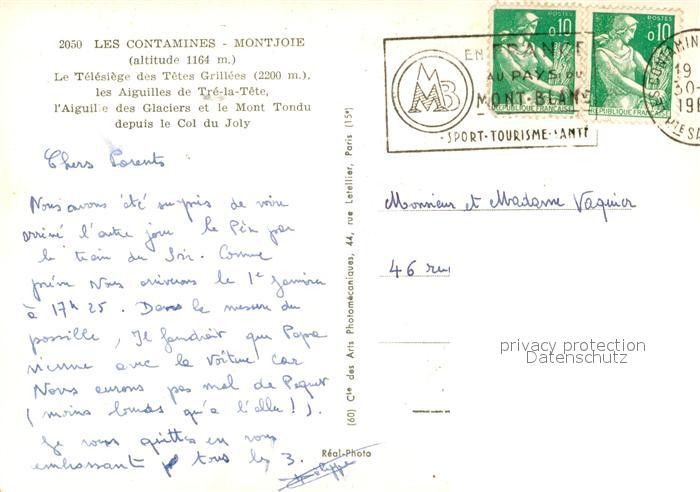 2050 LES CONTAMINES - MONTJOIE
(altitude 1164 m.)
Le Télésiège des Têtes Grillées (2200 m.),
les Aiguilles de Tré-la-Tête,
l'Aiguille des Glaciers et le Mont Tondu
depuis le Col du Joly
Chers Parents
Nous avons été surpris de voir
arriver l'autre jour le Père par
le train du Soir. Comme
prévu Nous arriverons le 1er Janvier
à 17h 25. Dans la mesure du
possible, Il faudrait que Papa
vienne avec la Voiture car
Nous aurons pas mal de Paquet
(moins lourds qu'à l'aller!).
Je vous quitte en vous
embrassant tous les 3.
Philippe
Réal-Photo
(60) Cie des Arts Photomécaniques, 44, rue Letellier, Paris (15e)
EN FRANCE
AU PAYS DU
MONT-BLANC
SPORT-TOURISME-SANTÉ
MMB
POSTES
0,10
REPUBLIQUE FRANÇAISE
POSTES
0,10
REPUBLIQUE FRANÇAISE
LES CONTAMIN
19
30-
196
HTE SA
Monsieur et Madame Vaquier
46 rue
privacy protection
Datenschutz